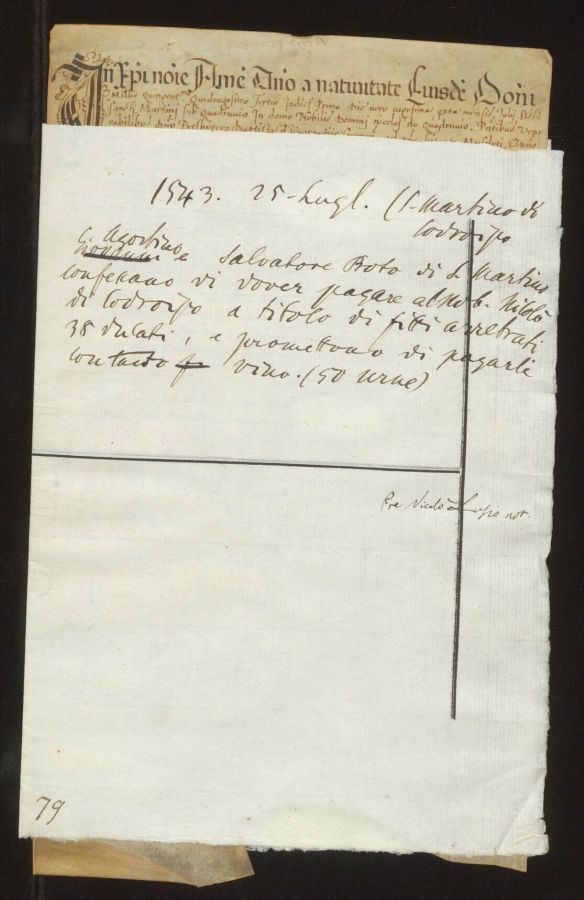 In Xpi noie Ame Ano a natiuitate Eiusde Domi
Millo quingentmo Quadragesimo Tertio Indict Prima Die uero uigesima qnta mensis Julij
sancti Martini sub quadruuio In domo Nobilis Domini nicolai de quadruuio. Pntibus
rabilibus Dno Presbytero Baptista
1543. 25 - Lugl. (S. Martino di
Codroipo
Agostino
Giovanni e Salvatore Proto di S. Martino
confessano di dover pagare al nob. Nicolò
di Codroipo a titolo di fitti arretrati
38 ducati, e promettono di pagarli
con tanto vino. (50 urne)
Pre Nicolò Lupo not.
79